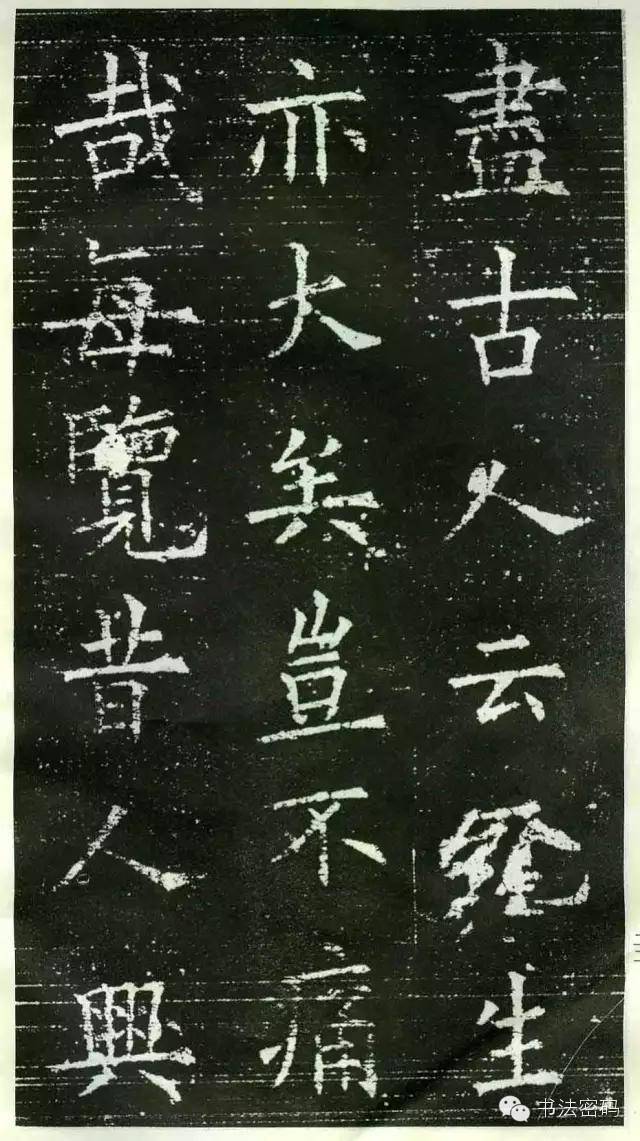 盡古人云生
亦大矣豈不痛
哉每覽昔人興
书法密码